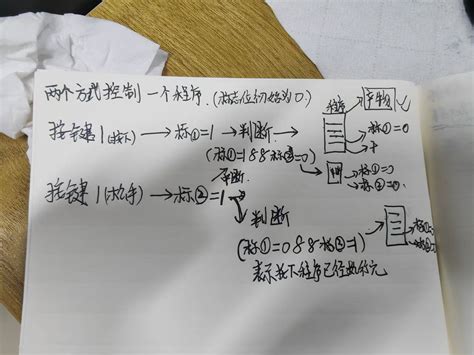 两个方式控制一个程序.(标志位初始为0)
程序
产物
按键1(按下)→标①=1→判断→
→标①=0
(标①=1&&标②=0)
→标①=0
→标②=0
判断
按键1(松手)→标②=1
判断
(标①=0&&标②=1)
表示按下程序已经执行完